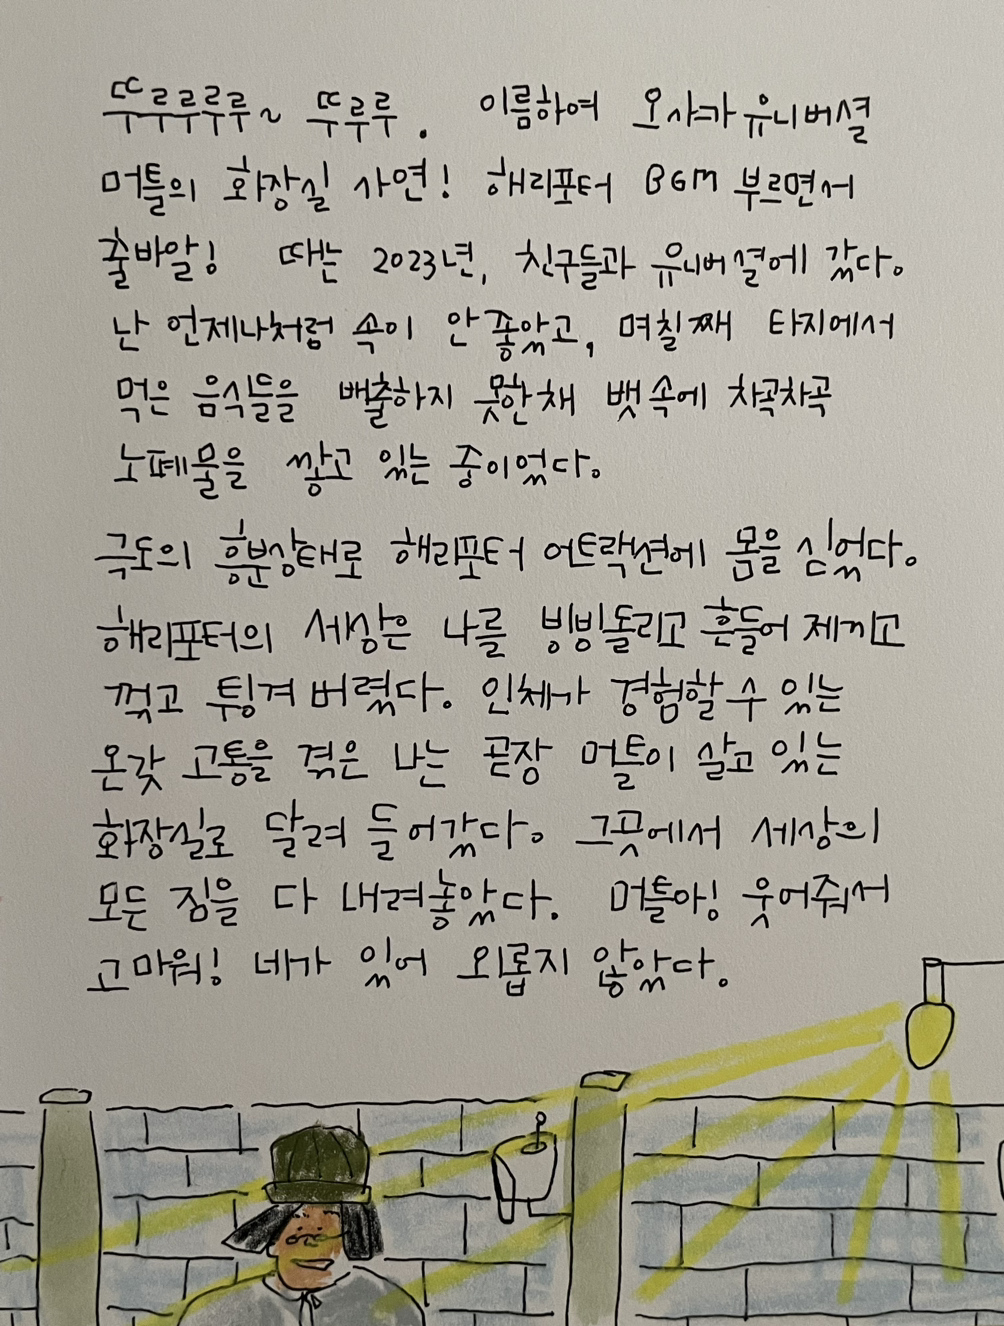 뚜루루루루~ 뚜루루. 이름하여 오사까 유니버셜
머틀의 화장실 사연! 해리포터 BGM 부르면서
출바알! 때는 2023년, 친구들과 유니버셜에 갔다.
난 언제나처럼 속이 안 좋았고, 며칠째 타지에서
먹은 음식들을 배출하지 못한채 뱃속에 차곡차곡
노폐물을 쌓고 있는 중이었다.
극도의 흥분상태로 해리포터 어트랙션에 몸을 실었다.
해리포터의 세상은 나를 빙빙돌리고 흔들어 제끼고
꺾고 튕겨버렸다. 인체가 경험할 수 있는
온갖 고통을 겪은 나는 곧장 머틀이 살고 있는
화장실로 달려 들어갔다. 그곳에서 세상의
모든 짐을 다 내려놓았다. 머틀아! 웃어줘서
고마워! 네가 있어 외롭지 않았다.